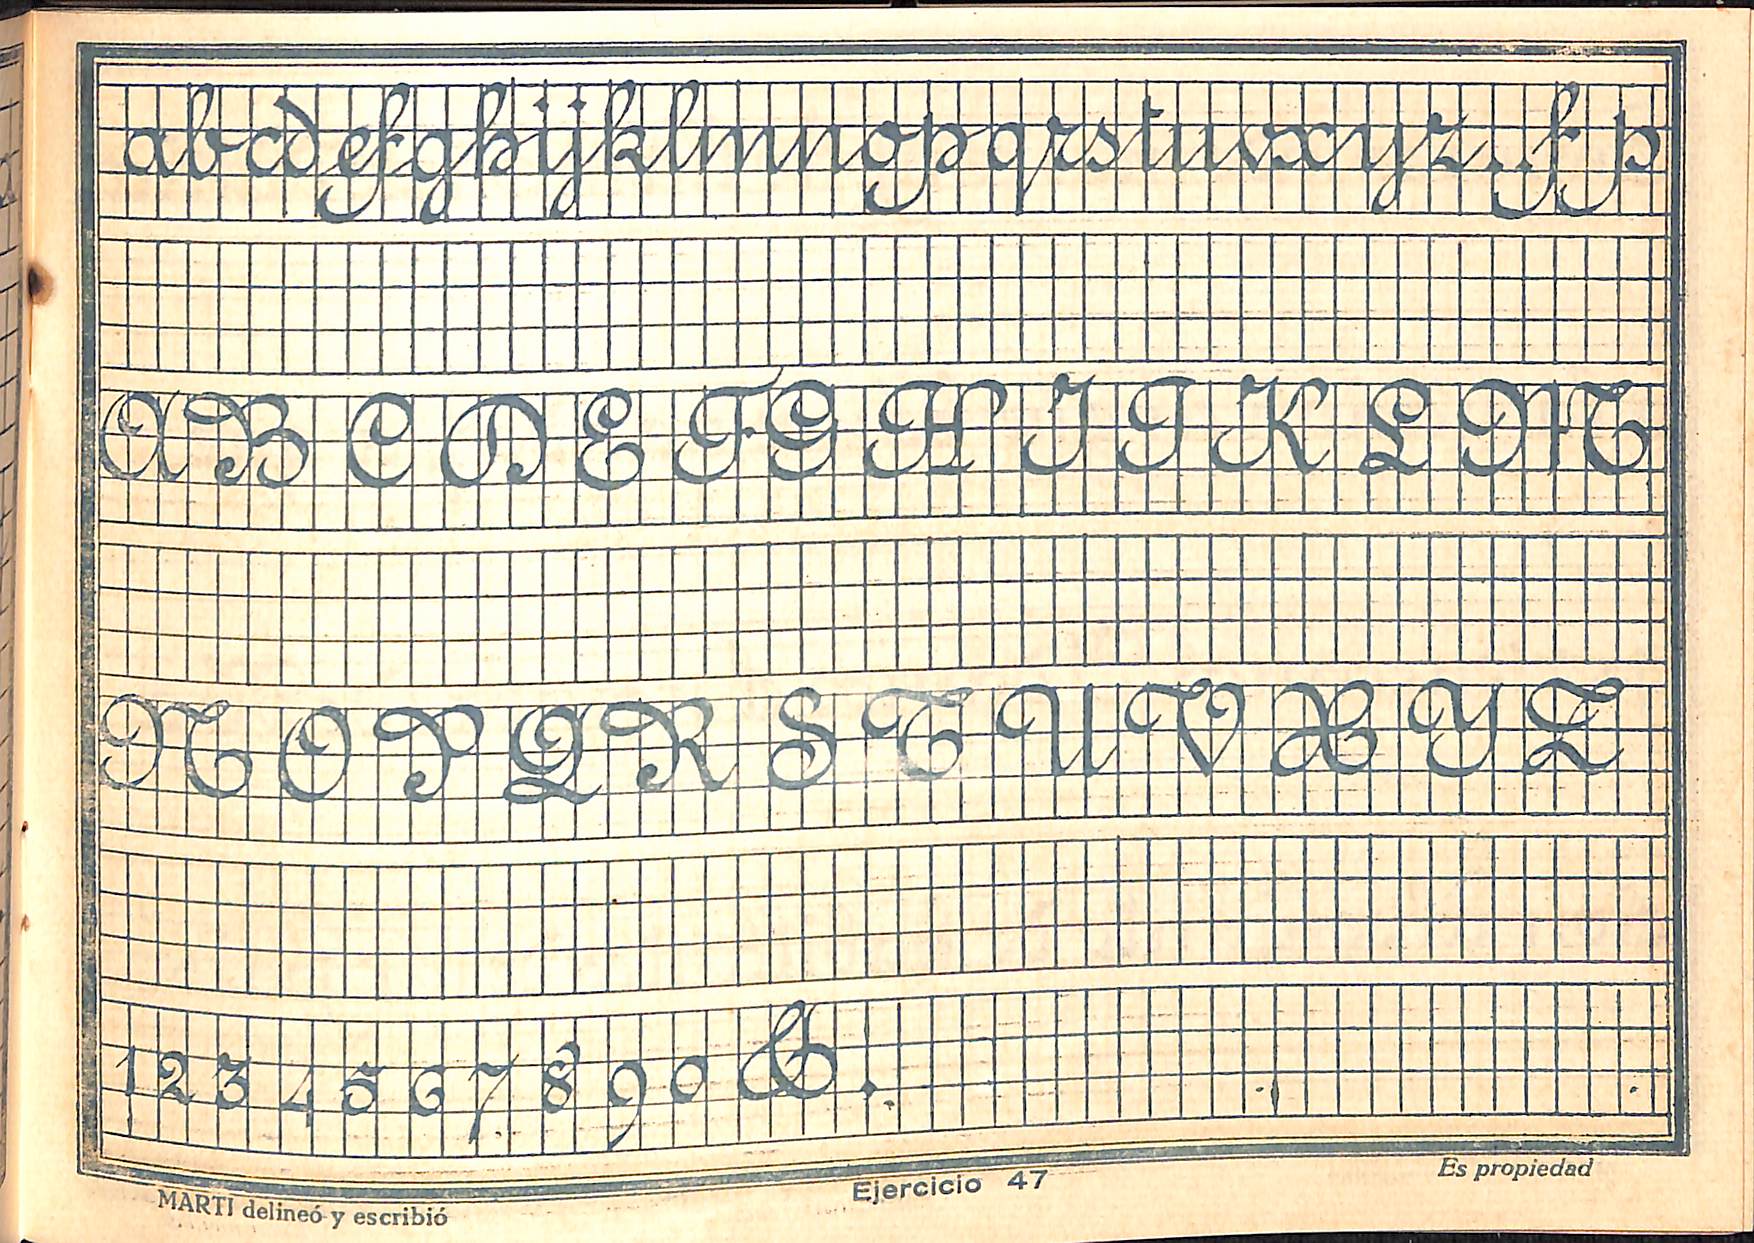 abcdefghijklmnopqrstuvxyz..fp
ABCDEFGHIJKLM
NOPQRSTUVXYZ
1 2 3 4 5 6 7 8 9 0 &.
MARTI delineó y escribió
Ejercicio 47
Es propiedad